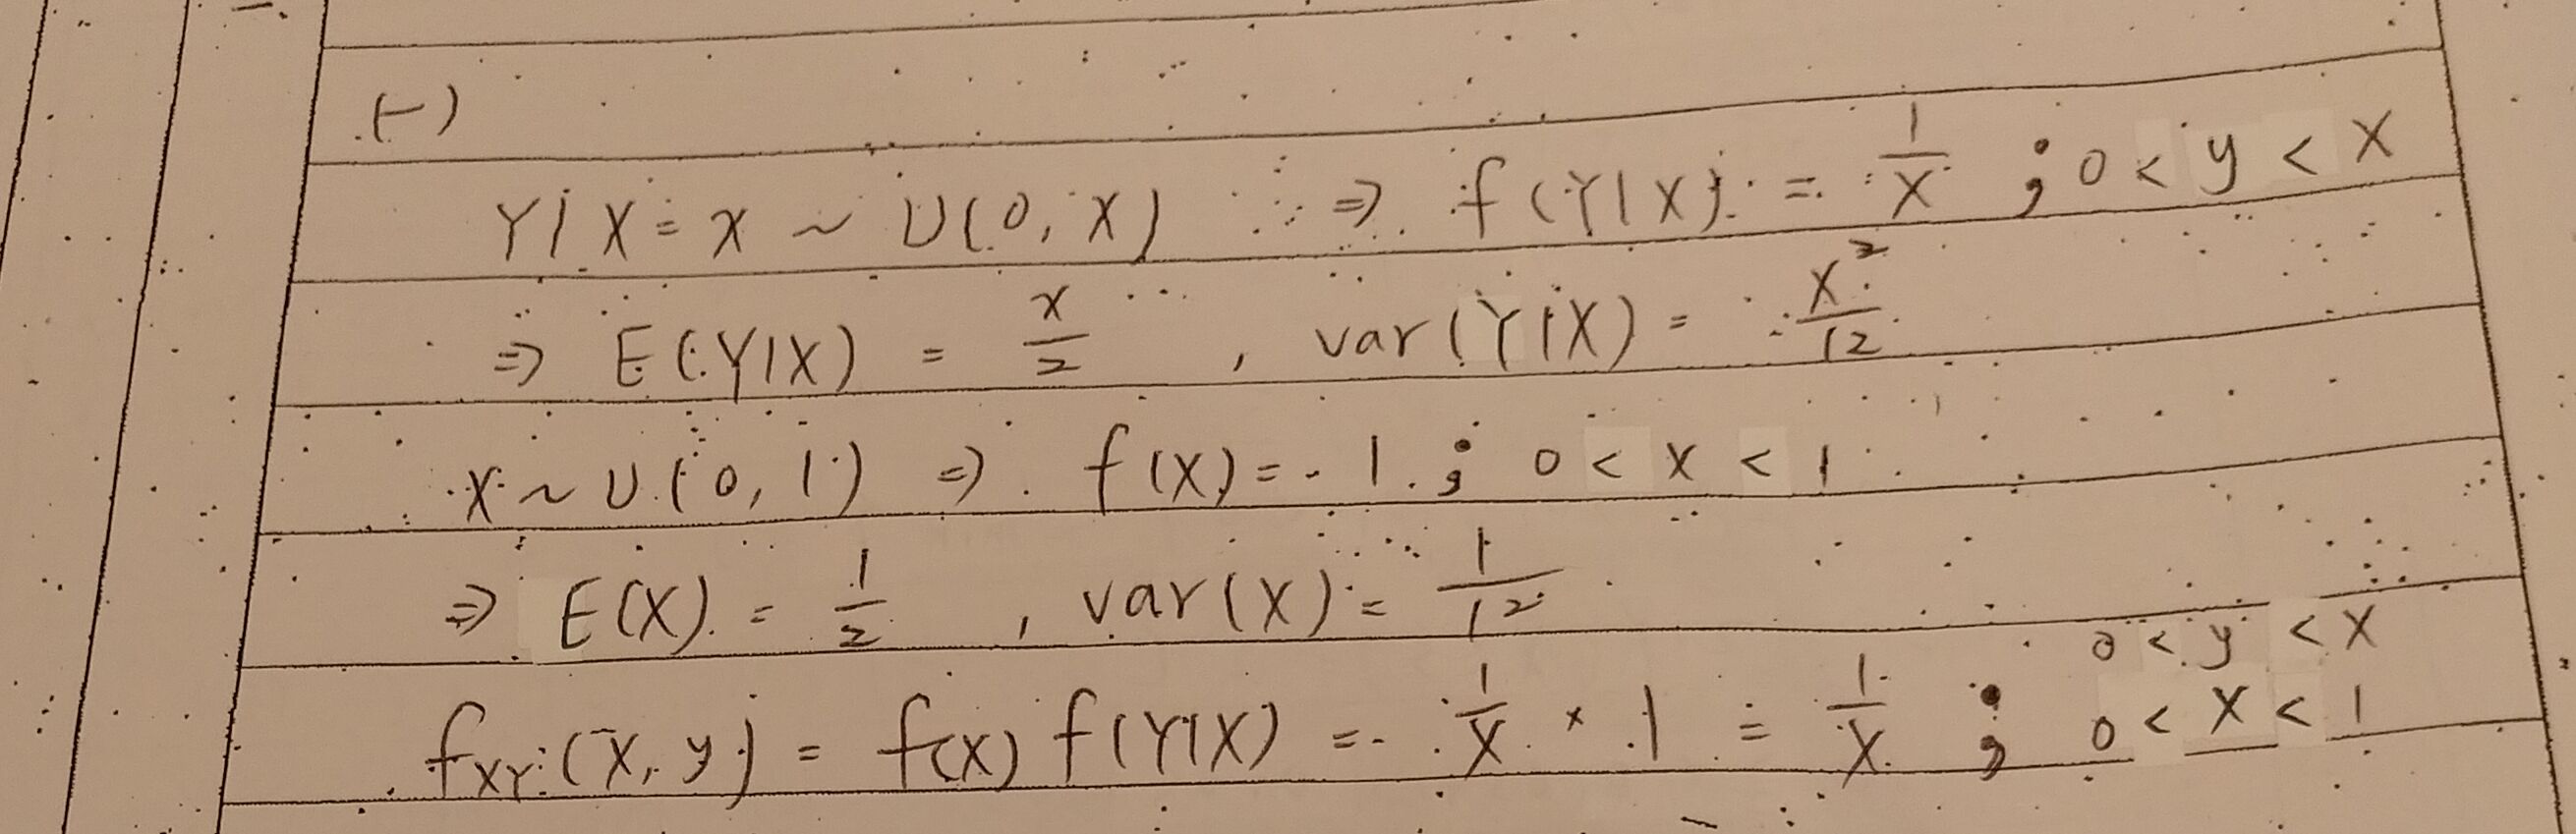 (一)
Y|X=x ~ U(0, X) ⇒ f(Y|X) = 1/X ; 0 < y < X
⇒ E(Y|X) = x/2 , var(Y|X) = X²/12
X ~ U(0, 1) ⇒ f(X) = 1 ; 0 < X < 1
⇒ E(X) = 1/2 , var(X) = 1/12
f_XY(X, y) = f(X) f(Y|X) = 1/X × 1 = 1/X ; 0 < y < X
0 < X < 1